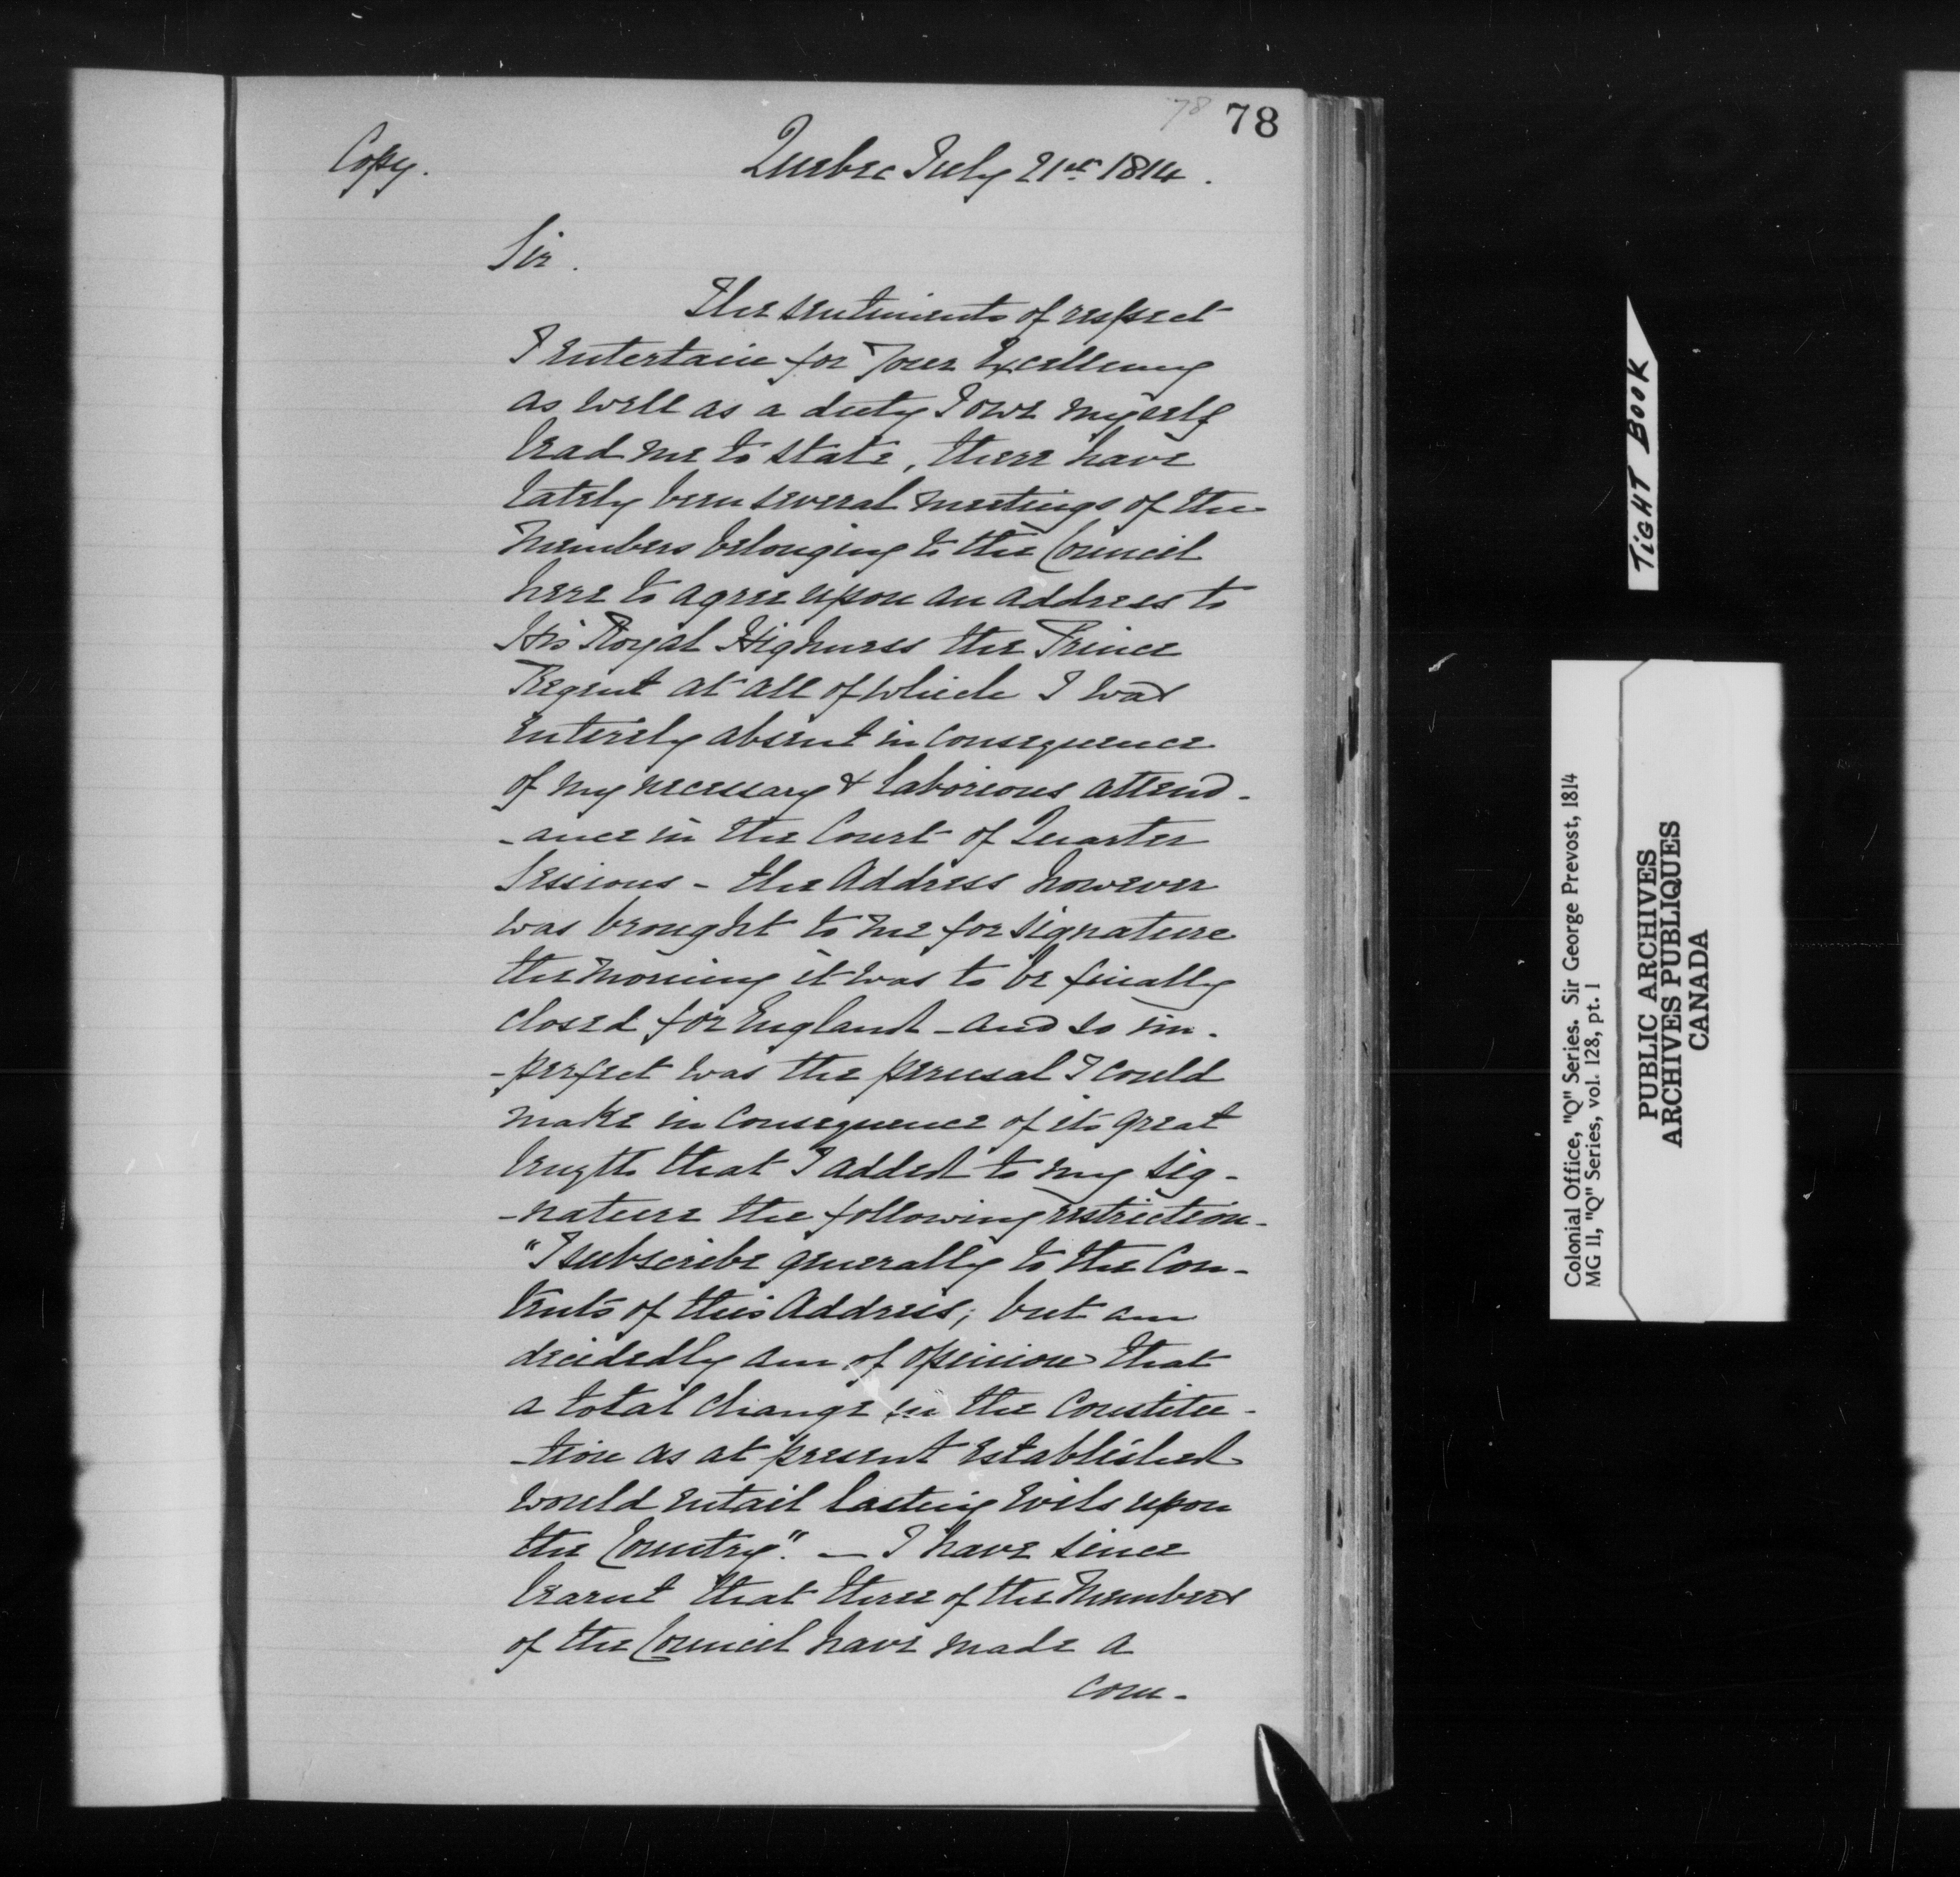 78 78
Copy. Quebec July 21st 1814.
Sir.
The sentiments of respect
I entertain for Your Excellency
as well as a duty I owe myself
lead me to state, there have
lately been several meetings of the
Members belonging to the Council
here to agree upon an address to
His Royal Highness the Prince
Regent at all of which I was
entirely absent in consequence
of my necessary & laborious attend-
-ance in the Court of Quarter
Sessions - the Address however
was brought to me for signature
the morning it was to be finally
closed for England - and so im-
-perfect was the perusal I could
make in consequence of its great
length that I added to my sig-
-nature the following restriction -
"I subscribe generally to the Con-
tents of this Address; but am
decidedly am of opinion that
a total change in the Constitu-
-tion as at present established
would entail lasting evils upon
the Country." — I have since
learnt that three of the Members
of the Council have made a
com-
TIGHT BOOK
Colonial Office, "Q" Series. Sir George Prevost, 1814
MG 11, "Q" Series, vol. 128, pt. 1
PUBLIC ARCHIVES
ARCHIVES PUBLIQUES
CANADA